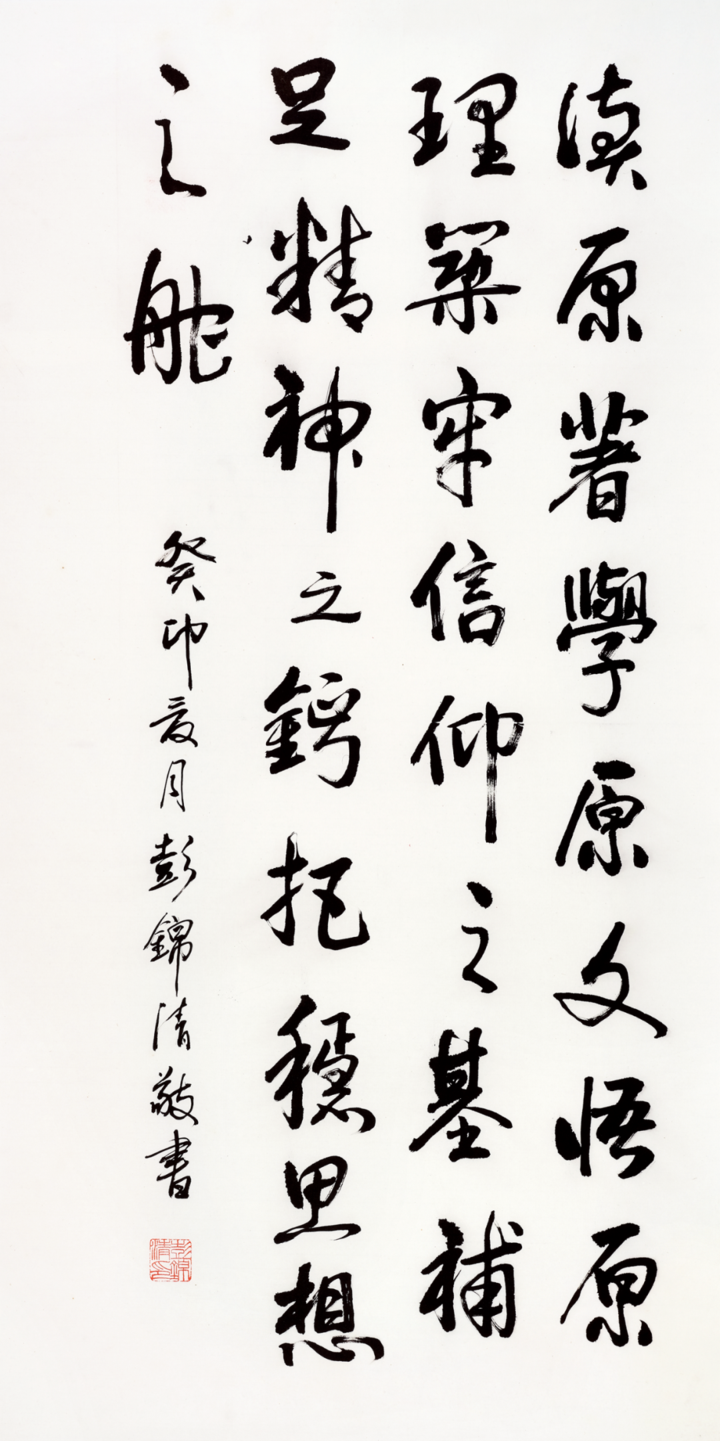 读原著學原文悟原
理築牢信仰之基補
足精神之鈣把穩思想
之舵
癸卯夏月彭錦清敬書
彭錦清印